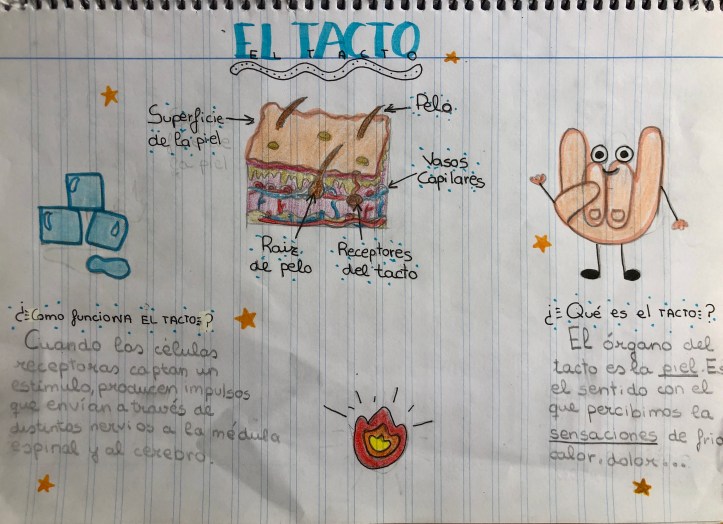 EL TACTO
EL TACTO
Superficie
de la piel
Pelo.
Vasos
Capilares
Raiz
de pelo
Receptores
del tacto
¿Como funciona EL TACTO?
Cuando las células
receptoras captan un
estímulo, producen impulsos
que envían a través de
distintos nervios a la médula
espinal y al cerebro.
¿Qué es el TACTO?
El órgano del
tacto es la piel. Es
el sentido con el
que percibimos la
sensaciones de frio
calor, dolor...